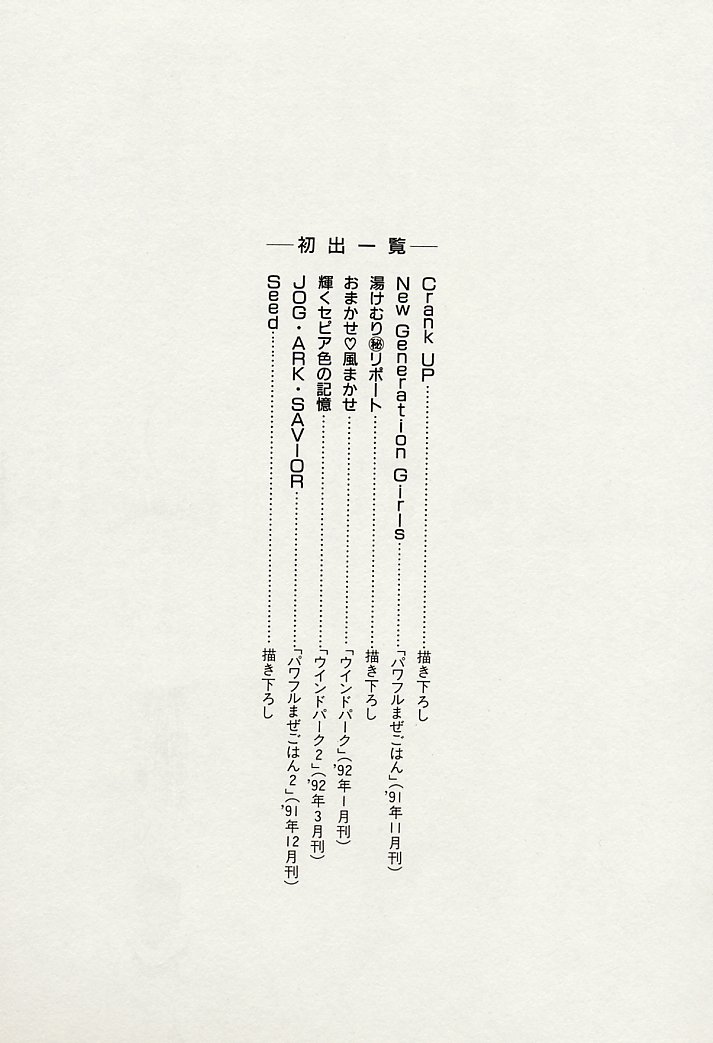 初出一覧
Crank UP……描き下ろし
New Generation Girls……「パワフルまぜごはん」('91年11月刊)
湯けむり㊙リポート……描き下ろし
おまかせ♡風まかせ……「ウインドパーク」('92年1月刊)
輝くセピア色の記憶……「ウインドパーク2」('92年3月刊)
JOG・ARK・SAVIOR……「パワフルまぜごはん2」('91年12月刊)
Seed……描き下ろし